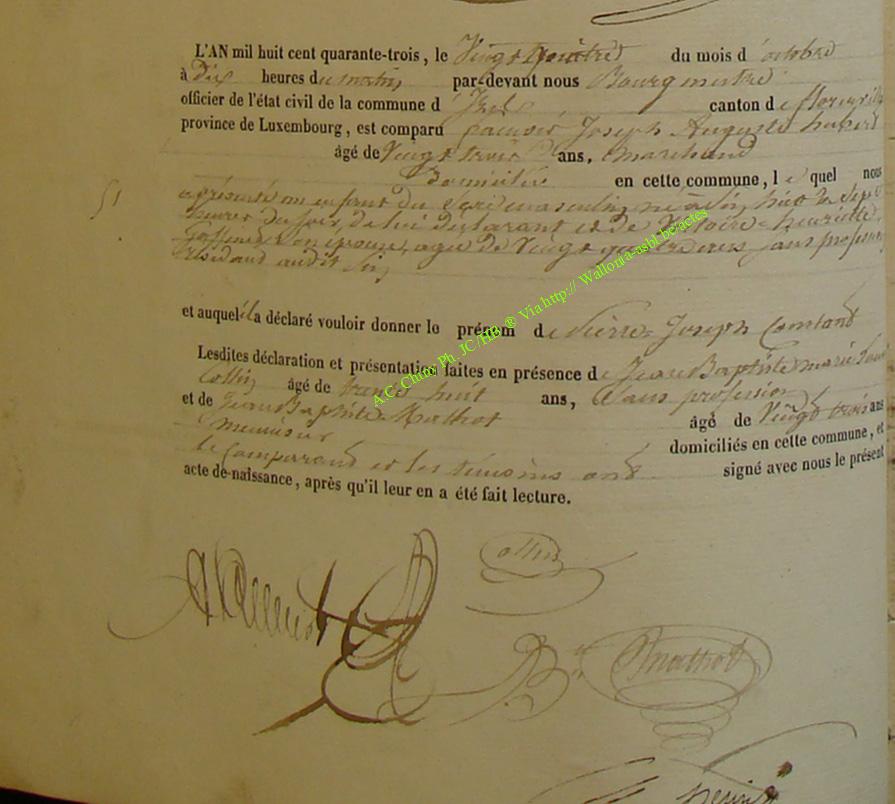 L'AN mil huit cent quarante-trois, le Vingt quatre du mois d'octobre
à Dix heures du matin, par-devant nous Bourgmestre
officier de l'état civil de la commune d' Izel canton de florenville
province de Luxembourg, est comparu Joseph Auguste hubert
âgé de Vingt trois ans, marchand
Domicilié en cette commune, le quel nous
51
a présenté un enfant du sexe masculin, né à huit de Sept
heures du soir, de lui déclarant et de Victoire henriette
son épouse, agée de Vingt quatre ans, sans profession
résidant audit
et auquel il a déclaré vouloir donner le prénom de Pierre Joseph Constant
Lesdites déclaration et présentation faites en présence de Jean Baptiste marie
Collin âgé de trente huit ans, Sans profession
et de Jean Baptiste Mathot âgé de Vingt trois ans
menuisier domiciliés en cette commune, et
le Comparant et les témoins ont signé avec nous le présent
acte de naissance, après qu'il leur en a été fait lecture.
A.C. Chiny Ph. JC/HB ® Via http://.Wallonia-asbl.be/actes
Collin
Mathot